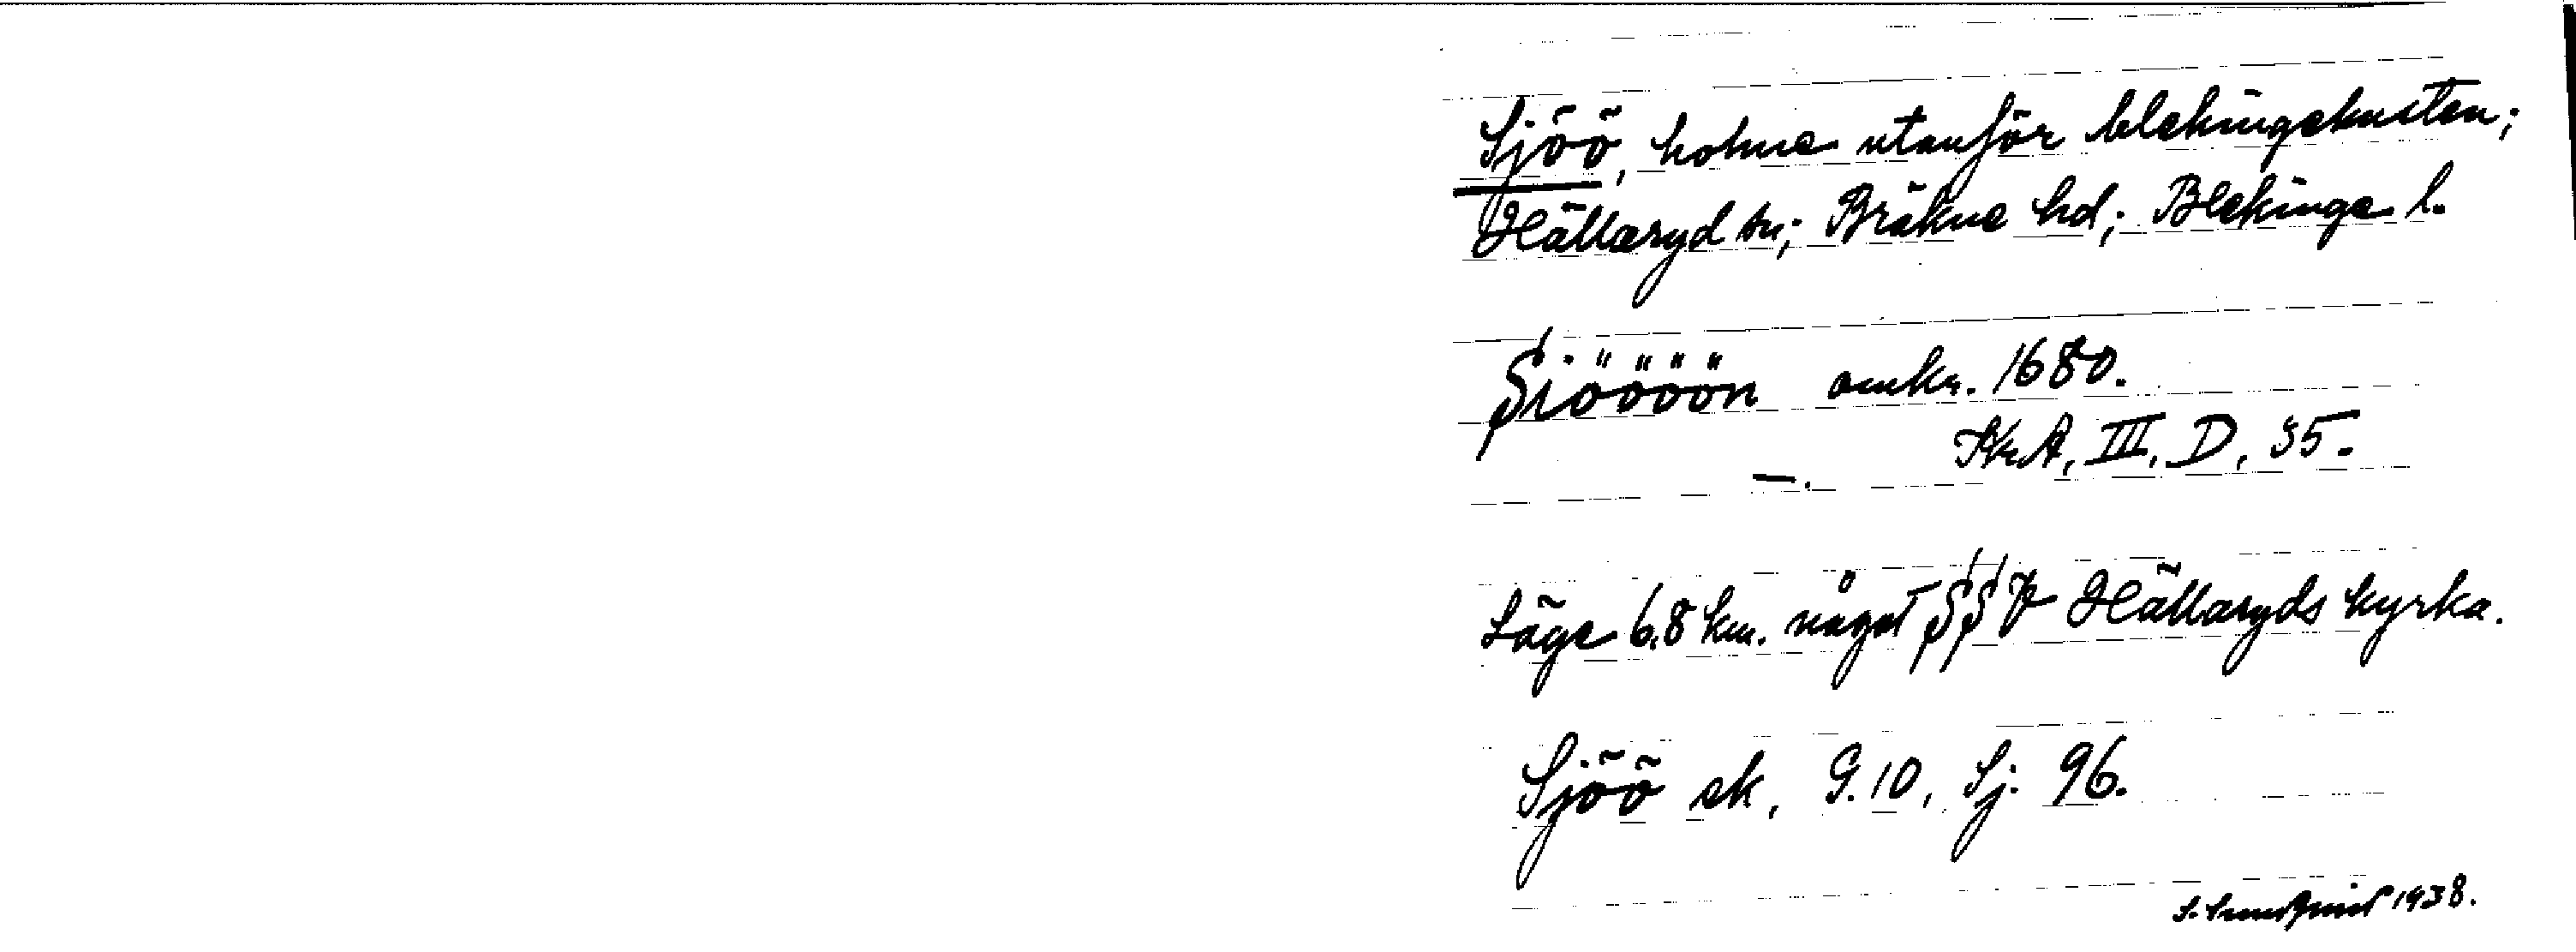 Sjöö, holme utanför blekingekusten;
Hällaryd sn; Bräkne hd; Blekinge l.
Siöööön omkr. 1680.
KrA, III, D, 35.
—.
Läge 6.8 km. något SSV Hällaryds kyrka.
Sjöö ek, G. 10, Sj. 96.
1938.